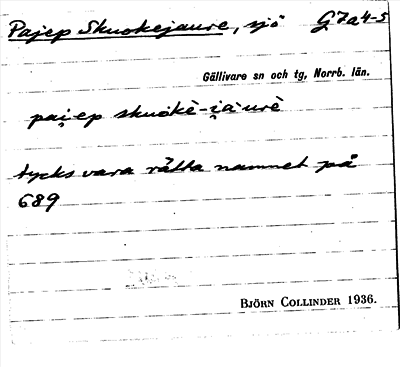 Pajep Skuokejaure, sjö G7a4-5
Gällivare sn och tg, Norrb. län.
pai̯ep skuökè-i̯àurè
tycks vara rätta namnet på
689
BJÖRN COLLINDER 1936.